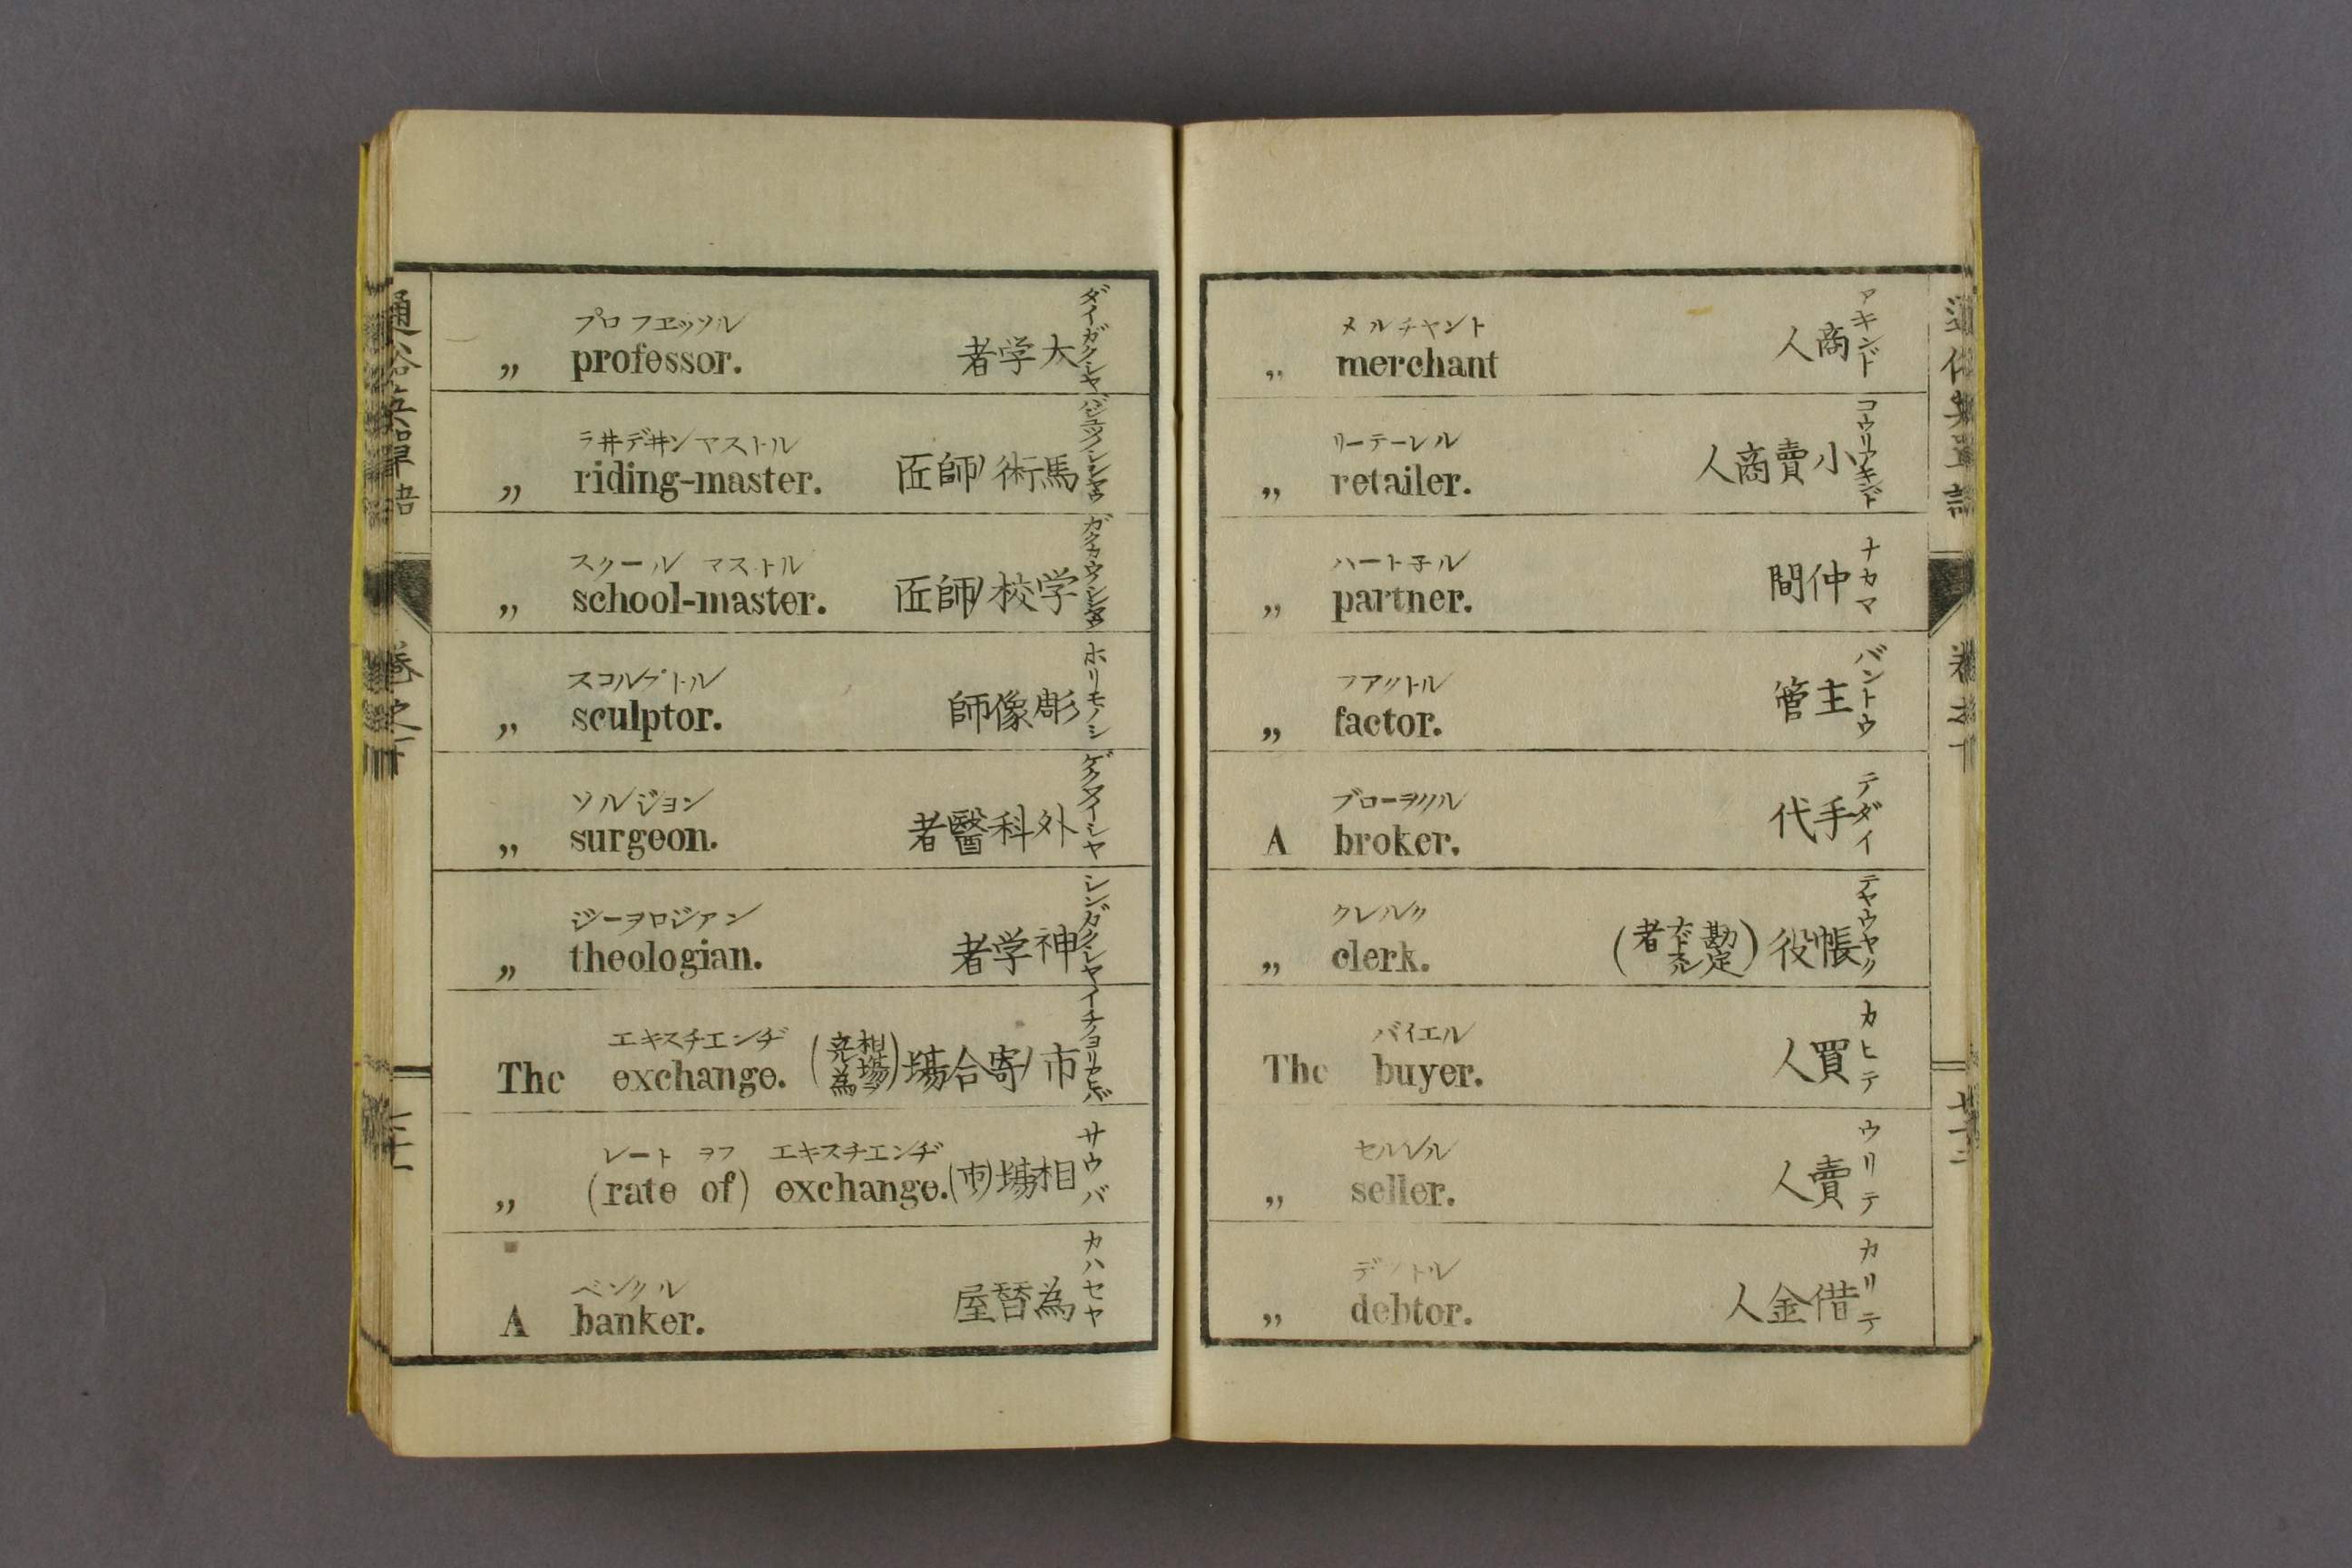 プロフヱッソル
„ professor. 大学者
ダイガクシヤ
ラ井デ井ンマストル
„ riding-master. 馬術ノ師匠
スクール マストル
„ school-master. 学校ノ師匠
スコルプトル
„ sculptor. 彫像師
ホリモノシ
ソルジョン
„ surgeon. 外科醫者
ゲクワイシヤ
ジーヲロジアン
„ theologian. 神学者
シンガクシヤ
エキスチエンヂ
The exchange. 市ノ寄合場
イチノヨリアヒバ
レート ヲフ エキスチエンヂ
„ (rate of) exchange. 相場(市ノ)
サウバ
ベンクル
A banker. 為替屋
カハセヤ
メルチヤント
„ merchant 商人
アキンド
リーテーレル
„ retailer. 小賣商人
コウリアキンド
ハート子ル
„ partner. 仲間
ナカマ
フアクトル
„ factor. 主管
バントウ
ブローヲクル
A broker. 手代
テダイ
クレルク
„ clerk. 帳役
チヤウヤク
バイエル
The buyer. 買人
カヒテ
セルレル
„ seller. 賣人
ウリテ
„ debtor. 借金人
カリテ